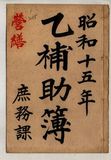 昭和十五年
乙補助簿
庶務課
營繕